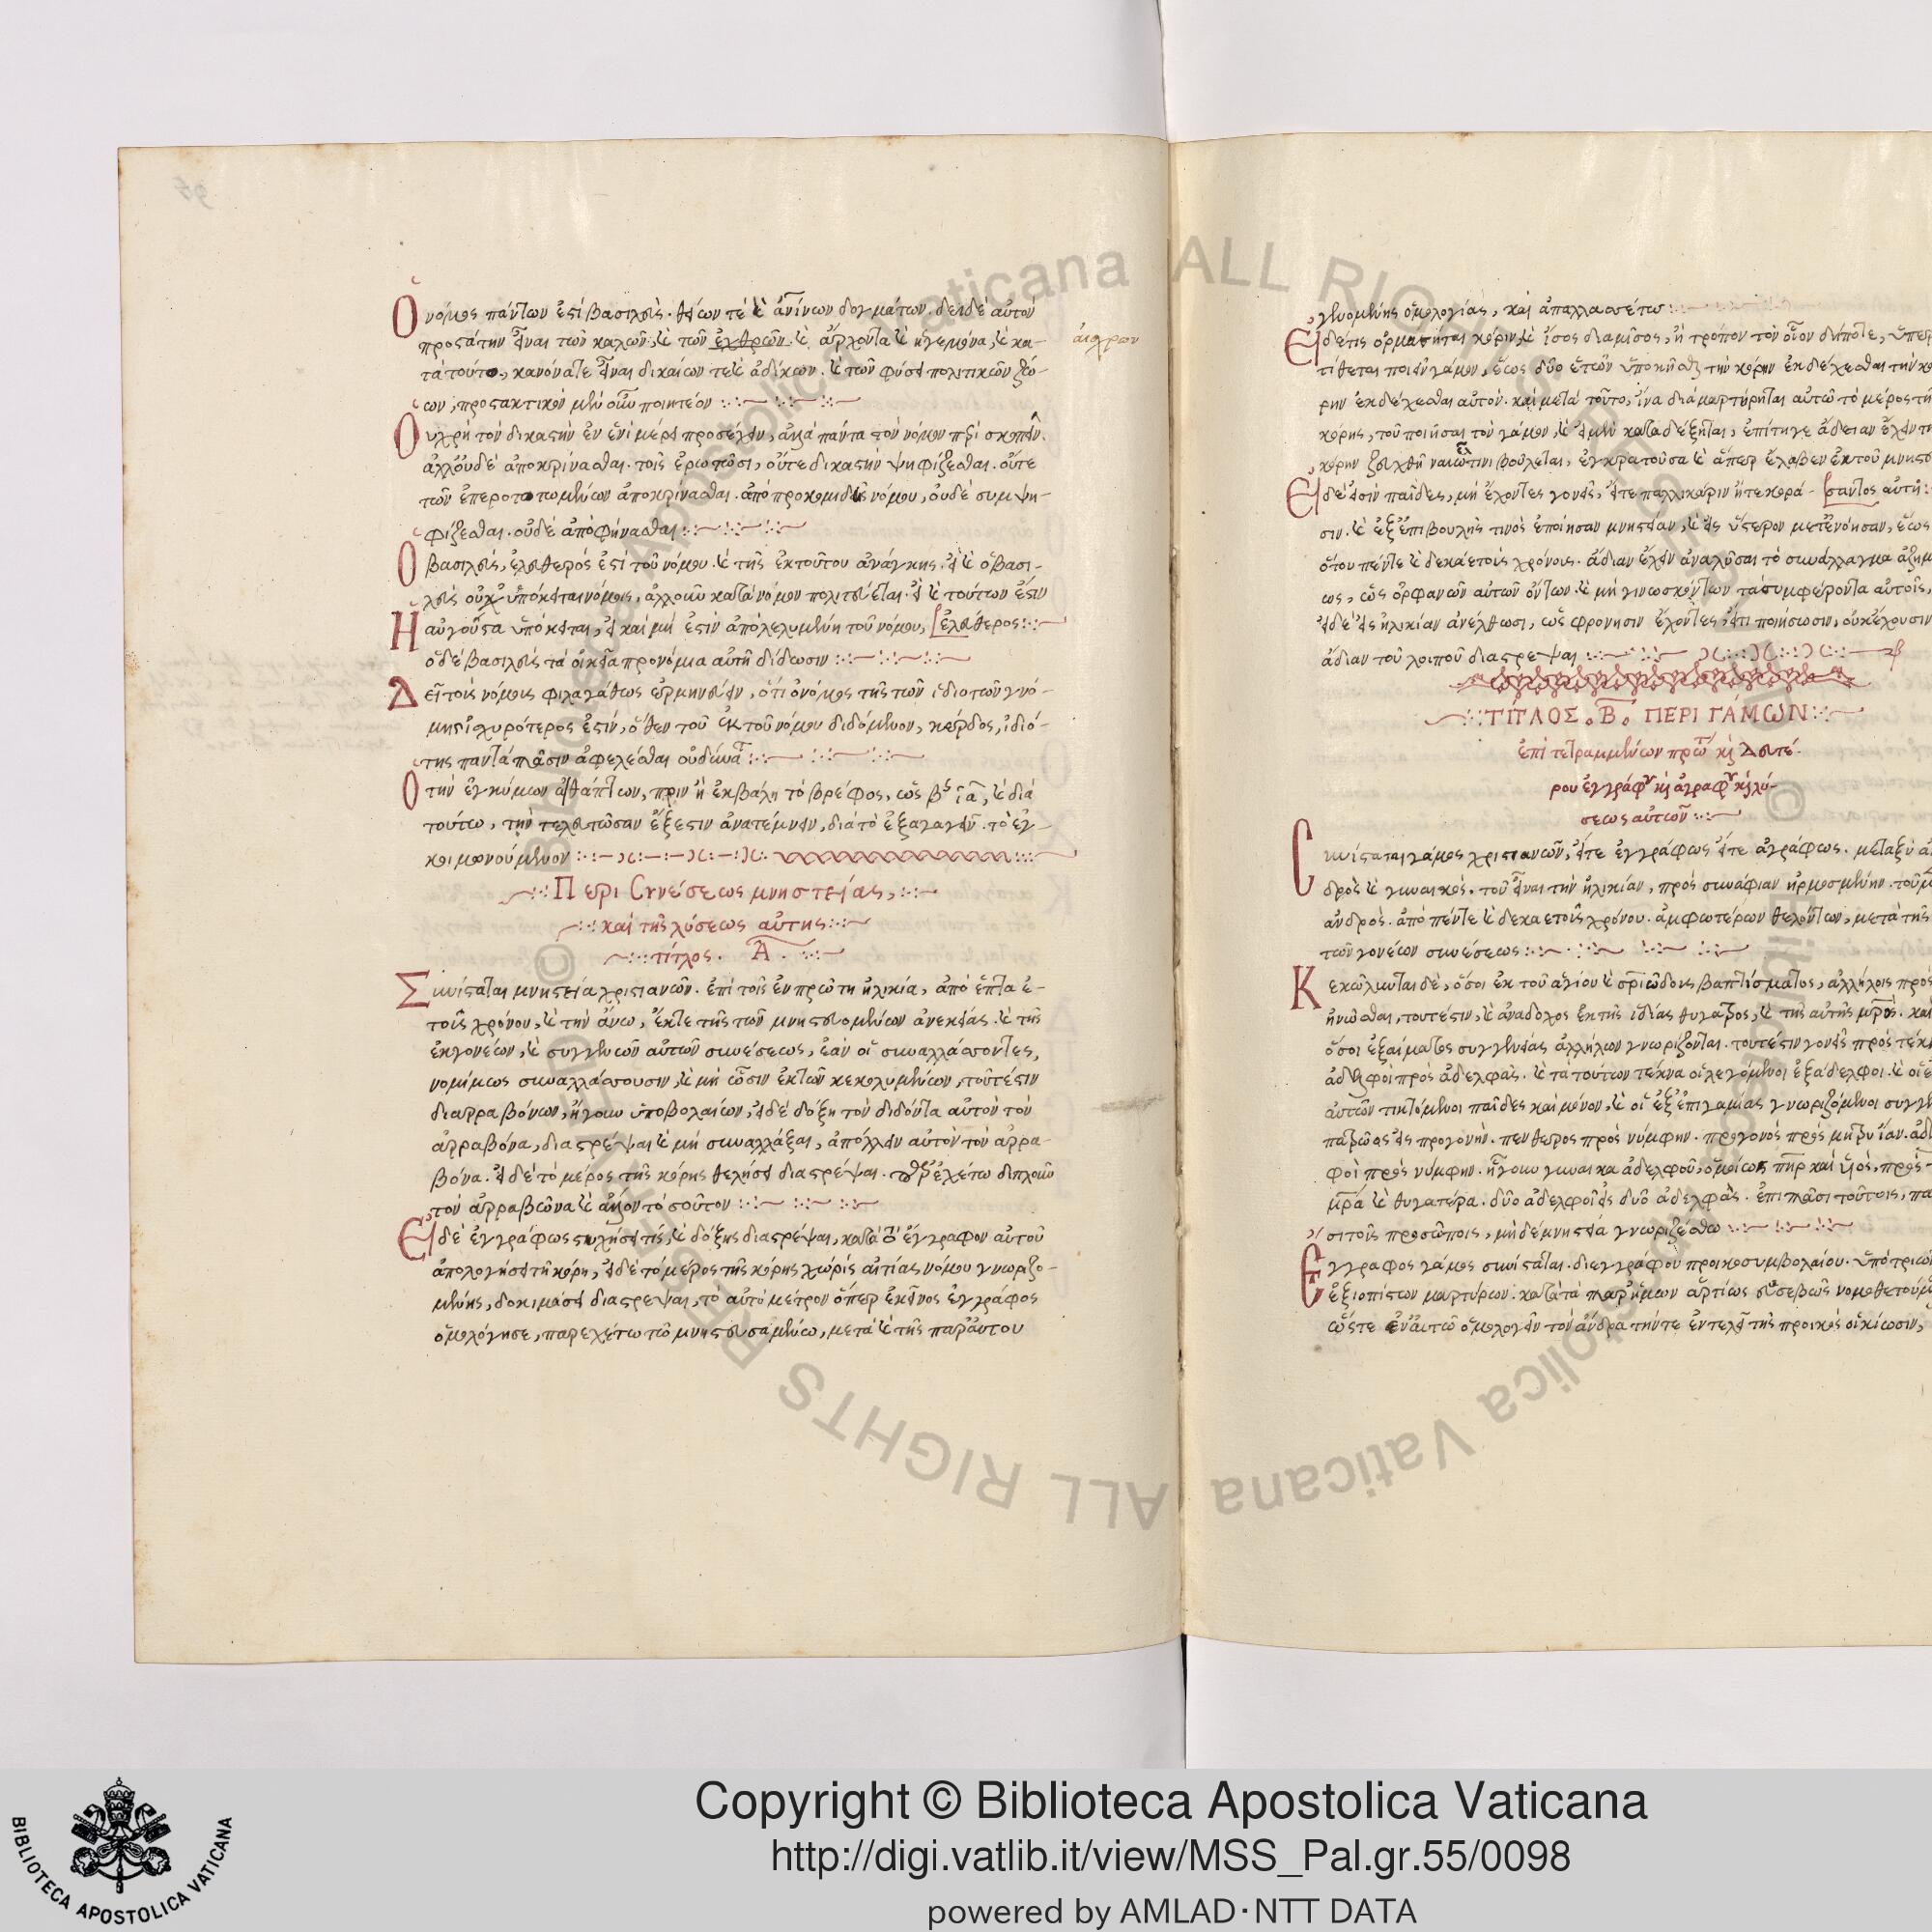 Ὁ νόμος πάντων ἐστὶ βασιλεὺς. θείων τὲ καὶ ἀνίνων δογμάτων. δεῖ δὲ αὐτὸν
προστάτην εἶναι τῶν καλῶν, καὶ τῶν ἐχθρῶν καὶ ἄρχοντα καὶ ἡγεμόνα, καὶ κα-
αἰσχρων
τὰ τούτο, κανόνα τε εἶναι δικαίων τε καὶ ἀδίκων. καὶ τῶν φύσει πολιτικῶν ζώ-
ων, προστακτικὸν μὲν οὖν ποιητέον
Οὐ χρὴ τὸν δικαστὴν ἐν ἑνὶ μέρει προσέχειν, ἀλλὰ πάντα τὸν νόμον περισκοπεῖν.
ἀλλ' οὐδὲ ἀποκρίνασθαι. τοῖς ἐρωτῶσι, οὔτε δικαστὴν ψηφίζεσθαι. οὔτε
τῶν ἐπεροτοτωμένων ἀποκρίνασθαι. ἀπὸ προκομιδῆς νόμου, οὐδὲ συμψη-
φίζεσθαι. οὐδὲ ἀποφήνασθαι
Ὁ βασιλεὺς, ἐλεύθερός ἐστι τοῦ νόμου. καὶ τῆς ἐκ τούτου ἀνάγκης. εἰ καὶ ὁ βασι-
λεὺς οὐχ ὑπόκειται νόμοις, ἀλλ' οὖν κατὰ νόμον πολιτεύεται. εἰ καὶ τούτων ἐστιν
Ἡ αὐγούστα ὑπόκειται, εἰ καὶ μὴ ἐστὶν ἀπολελυμένη τοῦ νόμου, ἐλεύθερος
ὁ δὲ βασιλεὺς τὰ οἰκεῖα προνόμια αὐτῇ δίδωσιν
Δεῖ τοῖς νόμοις φιλαγάθως ἑρμηνεύειν, ὅτι ὁ νόμος τῆς τῶν ἰδιοτῶν γνό-
μης ἰσχυρότερος ἐστὶν, ὅθεν τοῦ ἐκ τοῦ νόμου διδόμενον, κέρδος, ἰδιό-
της παντάπασιν ἀφελέσθαι οὐ δύναται
Ὁ τὴν ἐγκύμων θάπτων, πρὶν ἢ ἐκβάλῃ τὸ βρέφος, καὶ διὰ
τούτω, τὴν τελευτῶσαν ἔξεστιν ἀνατέμνειν, διὰ τὸ ἐξαγαγεῖν. τὸ ἐγ-
κοιμονούμενον
Περι Συνέσεως μνηστείας,
καὶ τῆς λύσεως αὐτῆς
τίτλος. Α.
Συνίσταται μνηστεία χριστιανῶν. ἐπὶ τοῖς ἐν πρώτη ἡλικία, ἀπὸ ἑπτα ἐ-
τοῦς χρόνου, καὶ τὴν ἄνω, ἔκτε τῆς τῶν μνηστευομένων ἀνεκείας. καὶ τῆς
ἐκ γονέων, καὶ συγγενῶν αὐτῶν συνέσεως, ἐὰν οἱ συναλλάσσοντες,
νομίμως συναλλάσσουσιν, καὶ μὴ ὦσιν ἐκ τῶν κεκολυμένων, τοῦτέστιν
διαρραβόνων, ἤγουν ὑποβολαίων, εἰ δὲ δόξη τὸν διδόντα αὐτὸν τὸν
ἀρραβόνα, διαστρέψαι καὶ μὴ συναλλάξαι, ἀπόλλειν αὐτὸν τὸν ἀρρα-
βόνα. εἰ δὲ τὸ μέρος τῆς κόρης θελήσει διαστρέψαι. παρεχέτω διπλοῦν
τὸν ἀρραβῶνα καὶ ἄλλον τοσοῦτον
Εἰ δὲ ἐγγράφως στυχήσει τίς, καὶ δόξῃς διαστρέψαι, κατὰ τὸ ἔγγραφον αὐτοῦ
ἀπολογήσει τῇ κόρῃ, εἰ δὲ τὸ μέρος τῆς κορης χωρὶς αἰτίας νόμου γνωριζο-
μένης, δοκιμάσει διαστρεψαι, τὸ αὐτὸ μέτρον ὅπερ ἐκεῖνος ἐγγράφος
ὁμολόγησε, παρεχέτω τῶ μνηστευσαμένω, μετὰ καὶ τῆς παρ' αὐτου
γενομένης ὁμολογίας, καὶ ἀπαλλασσέτω
Εἰ δέ τις ὁρμαστῆται κόριν, καὶ ἴσος διαμῖσος, ἢ τρόπον τὸν οἷον δήποτε, ὑπερ
τίθεται ποιεῖν γάμον, ἕως δύο ἐτῶν τὴν κόρην ἐκδέχεσθαι τὴν κο
ρην ἐκδέχεσθαι αὐτόν. καὶ μετὰ τοῦτο, ἵνα διαμαρτύρηται αὐτῶ τὸ μέρος τῆς
κόρης, τοῦ ποιῆσαι τὸν γάμον, καὶ εἰ μὲν καταδέξηται, ἐπίτηγε ἄδειαν ἔχειν τὴν
κόρην ζευχθῆναι ᾧτινι βούλεται, ἐγκρατοῦσα καὶ ἅπερ ἔλαβεν ἐκ τοῦ μνηστεύ
Εἰ δὲ εἰσὶν παῖδες, μὴ ἔχοντες γονεῖς, εἴτε παλλικάριν ἤτε κορά- σαντος αὐτὴ
σιν. καὶ ἐξ ἐπιβουλῆς τινὸς ἐποίησαν μνηστείαν, καὶ εἰς ὕστερον μετενόησαν, ἕως
ὅτου πέντε καὶ δεκαετοῖς χρόνοις. ἄδιαν ἔχειν ἀναλῦσαι τὸ συνάλλαγμα ἀζημ
ως, ὡς ὀρφανῶν αὐτῶν ὄντων. καὶ μὴ γινωσκόντων τὰ συμφέροντα αὐτοῖς,
εἰ δὲ εἰς ἡλικίαν ἀνέλθωσι, ὡς φρονησιν ἔχοντες, ἔτι ποιήσωσιν, οὐκ ἔχουσιν
ἄδιαν τοῦ λοιποῦ διαστρεψαι
ΤΙΤΛΟΣ. Β. ΠΕΡΙ ΓΑΜΩΝ
ἐπι τετραμμένων πρώτου καὶ δευτέ-
ρου ἐγγράφου καὶ ἀγραφου καὶ λύ-
σεως αὐτῶν
Συνίσταται γάμος χριστιανῶν, εἴτε ἐγγράφως εἴτε ἀγράφως. μεταξὺ ἀ
δρὸς καὶ γυναικὸς. τοῦ εἶναι τὴν ἡλικίαν, πρὸς συνάφιαν ἡρμοσμένην. τοῦ μ
ἀνδρὸς. ἀπὸ πέντε καὶ δεκα ετοῖς χρόνου. ἀμφωτέρων θελόντων, μετὰ τῆς
τῶν γονέων συνέσεως
Κεκώλυνται δὲ, ὅσοι ἐκ τοῦ ἁγίου καὶ σριώδους βαπτίσματος, ἀλλήλοις πρὸς
ἡνῶσθαι, τουτέστιν, καὶ ἀνάδοχος ἐκ τῆς ἰδίας θυγατρος, καὶ τῆς αὐτῆς μρος. και
ὅσοι ἐξ αἵματος συγγενείας ἀλλήλων γνωρίζονται. τουτέστιν γονεῖς πρὸς τέκν
ἀδελφοὶ πρὸς ἀδελφὰς. καὶ τὰ τούτων τέκνα οἱ λεγόμενοι ἐξαδελφοι. καὶ οἱ ἐ
αὐτῶν τικτόμενοι παῖδες καὶ μόνον, καὶ οἱ ἐξ ἐπιγαμίας γνωριζόμενοι συγγε
πατρωὸς εἰς προγονὴν. πενθερος πρὸς νύμφην. προγονὸς πρὸς μητρυϊάν. ἀδελ
φοὶ πρὸς νύμφην. ἤγουν γυναικα ἀδελφοῦ, ὁμοίως πηρ καὶ υἱὸς, πρὸς-
μρα καὶ θυγατέρα. δύο ἀδελφοὶ εἰς δυὸ ἀδελφὰς. ἐπὶ πᾶσι τούτοις, πα
σι τοῖς προσώποις, μὴ δὲ μνηστεία γνωριζέσθω
Ἔγγραφος γάμος συνίσταται. δι εγγράφου προικοσυμβολαίου. ὑπὸ τριῶν
ἐξιοπίστων μαρτύρων. κατὰ τὰ παρ' ἡμῶν ἀρτίως εὐσεβῶς νομοθετούμε
ὥστε ἐν αὐτῶ ὁμολογεῖν τὸν ἄνδρα τήν τε ἐντελῆ τῆς προικὸς οἰκίωσιν,
Copyright © Biblioteca Apostolica Vaticana
http://digi.vatlib.it/view/MSS_Pal.gr.55/0098
powered by AMLAD·NTT DATA
BIBLIOTECA APOSTOLICA VATICANA